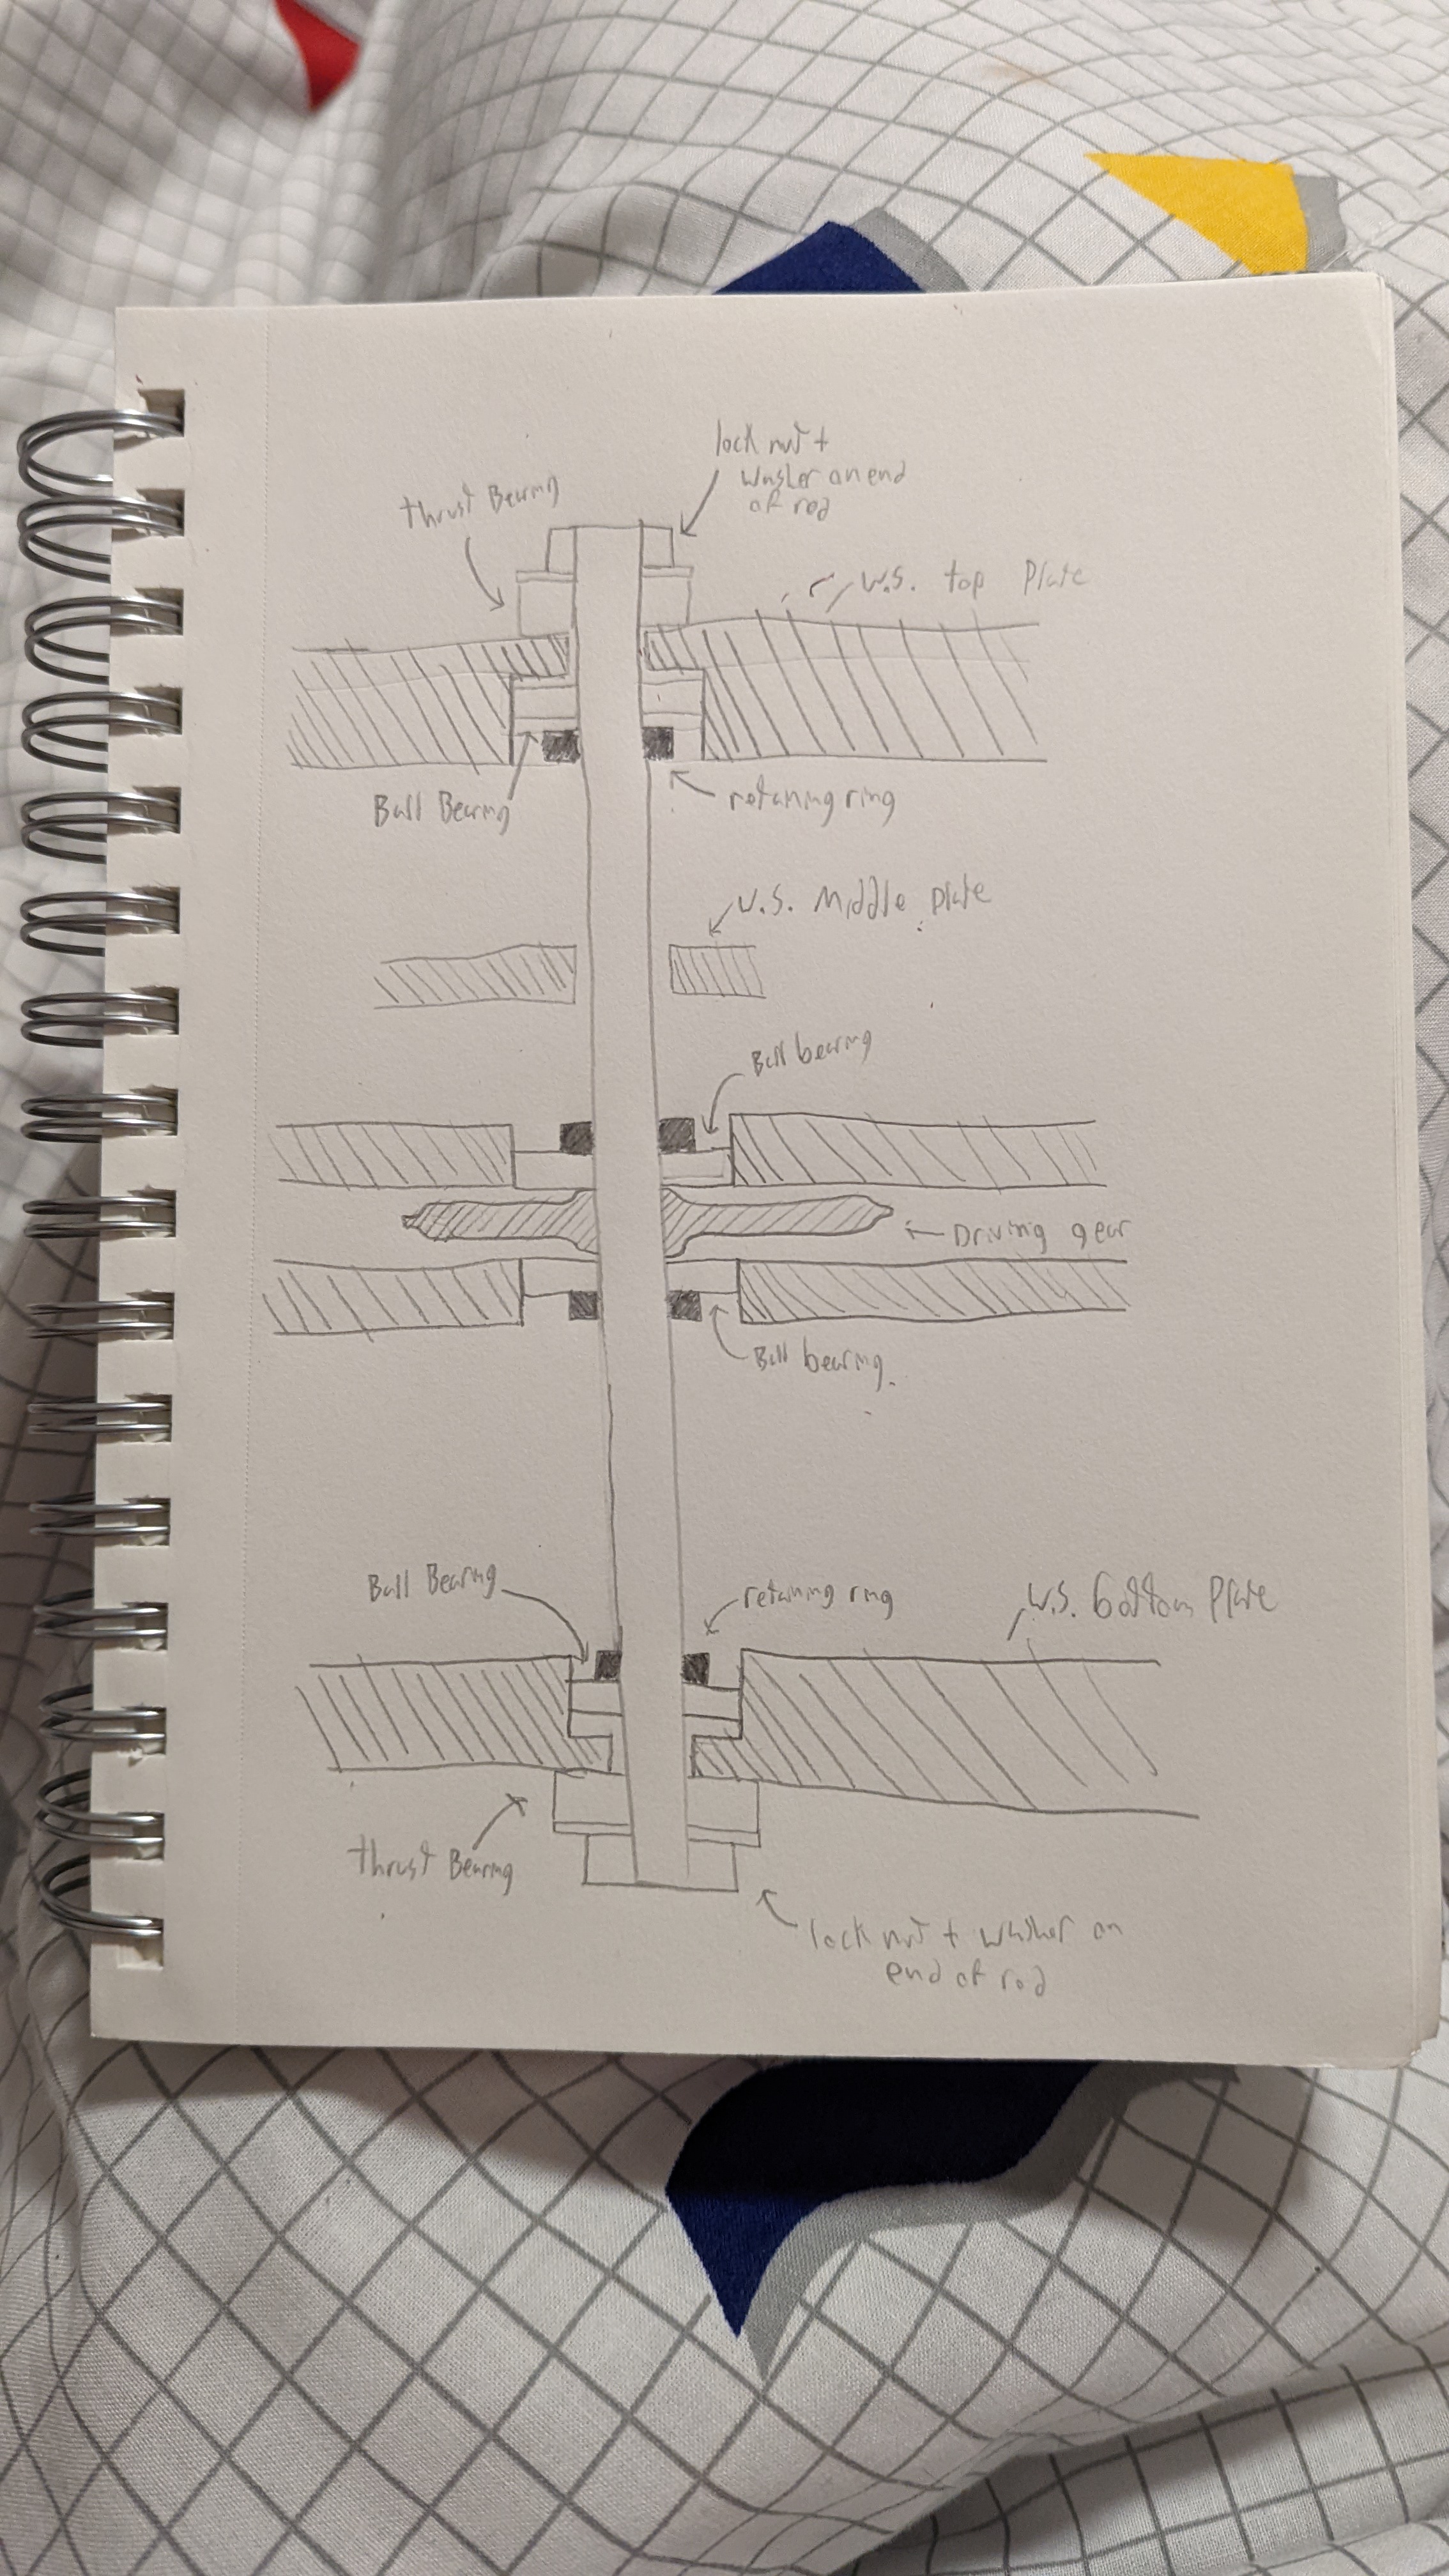 lock nut +
washer on end
of rod
thrust Bearing
W.S. top Plate
Ball Bearing
retaining ring
W.S. Middle plate
Ball bearing
Driving gear
Ball bearing
Ball Bearing
retaining ring
W.S. bottom Plate
thrust Bearing
lock nut + washer on
end of rod